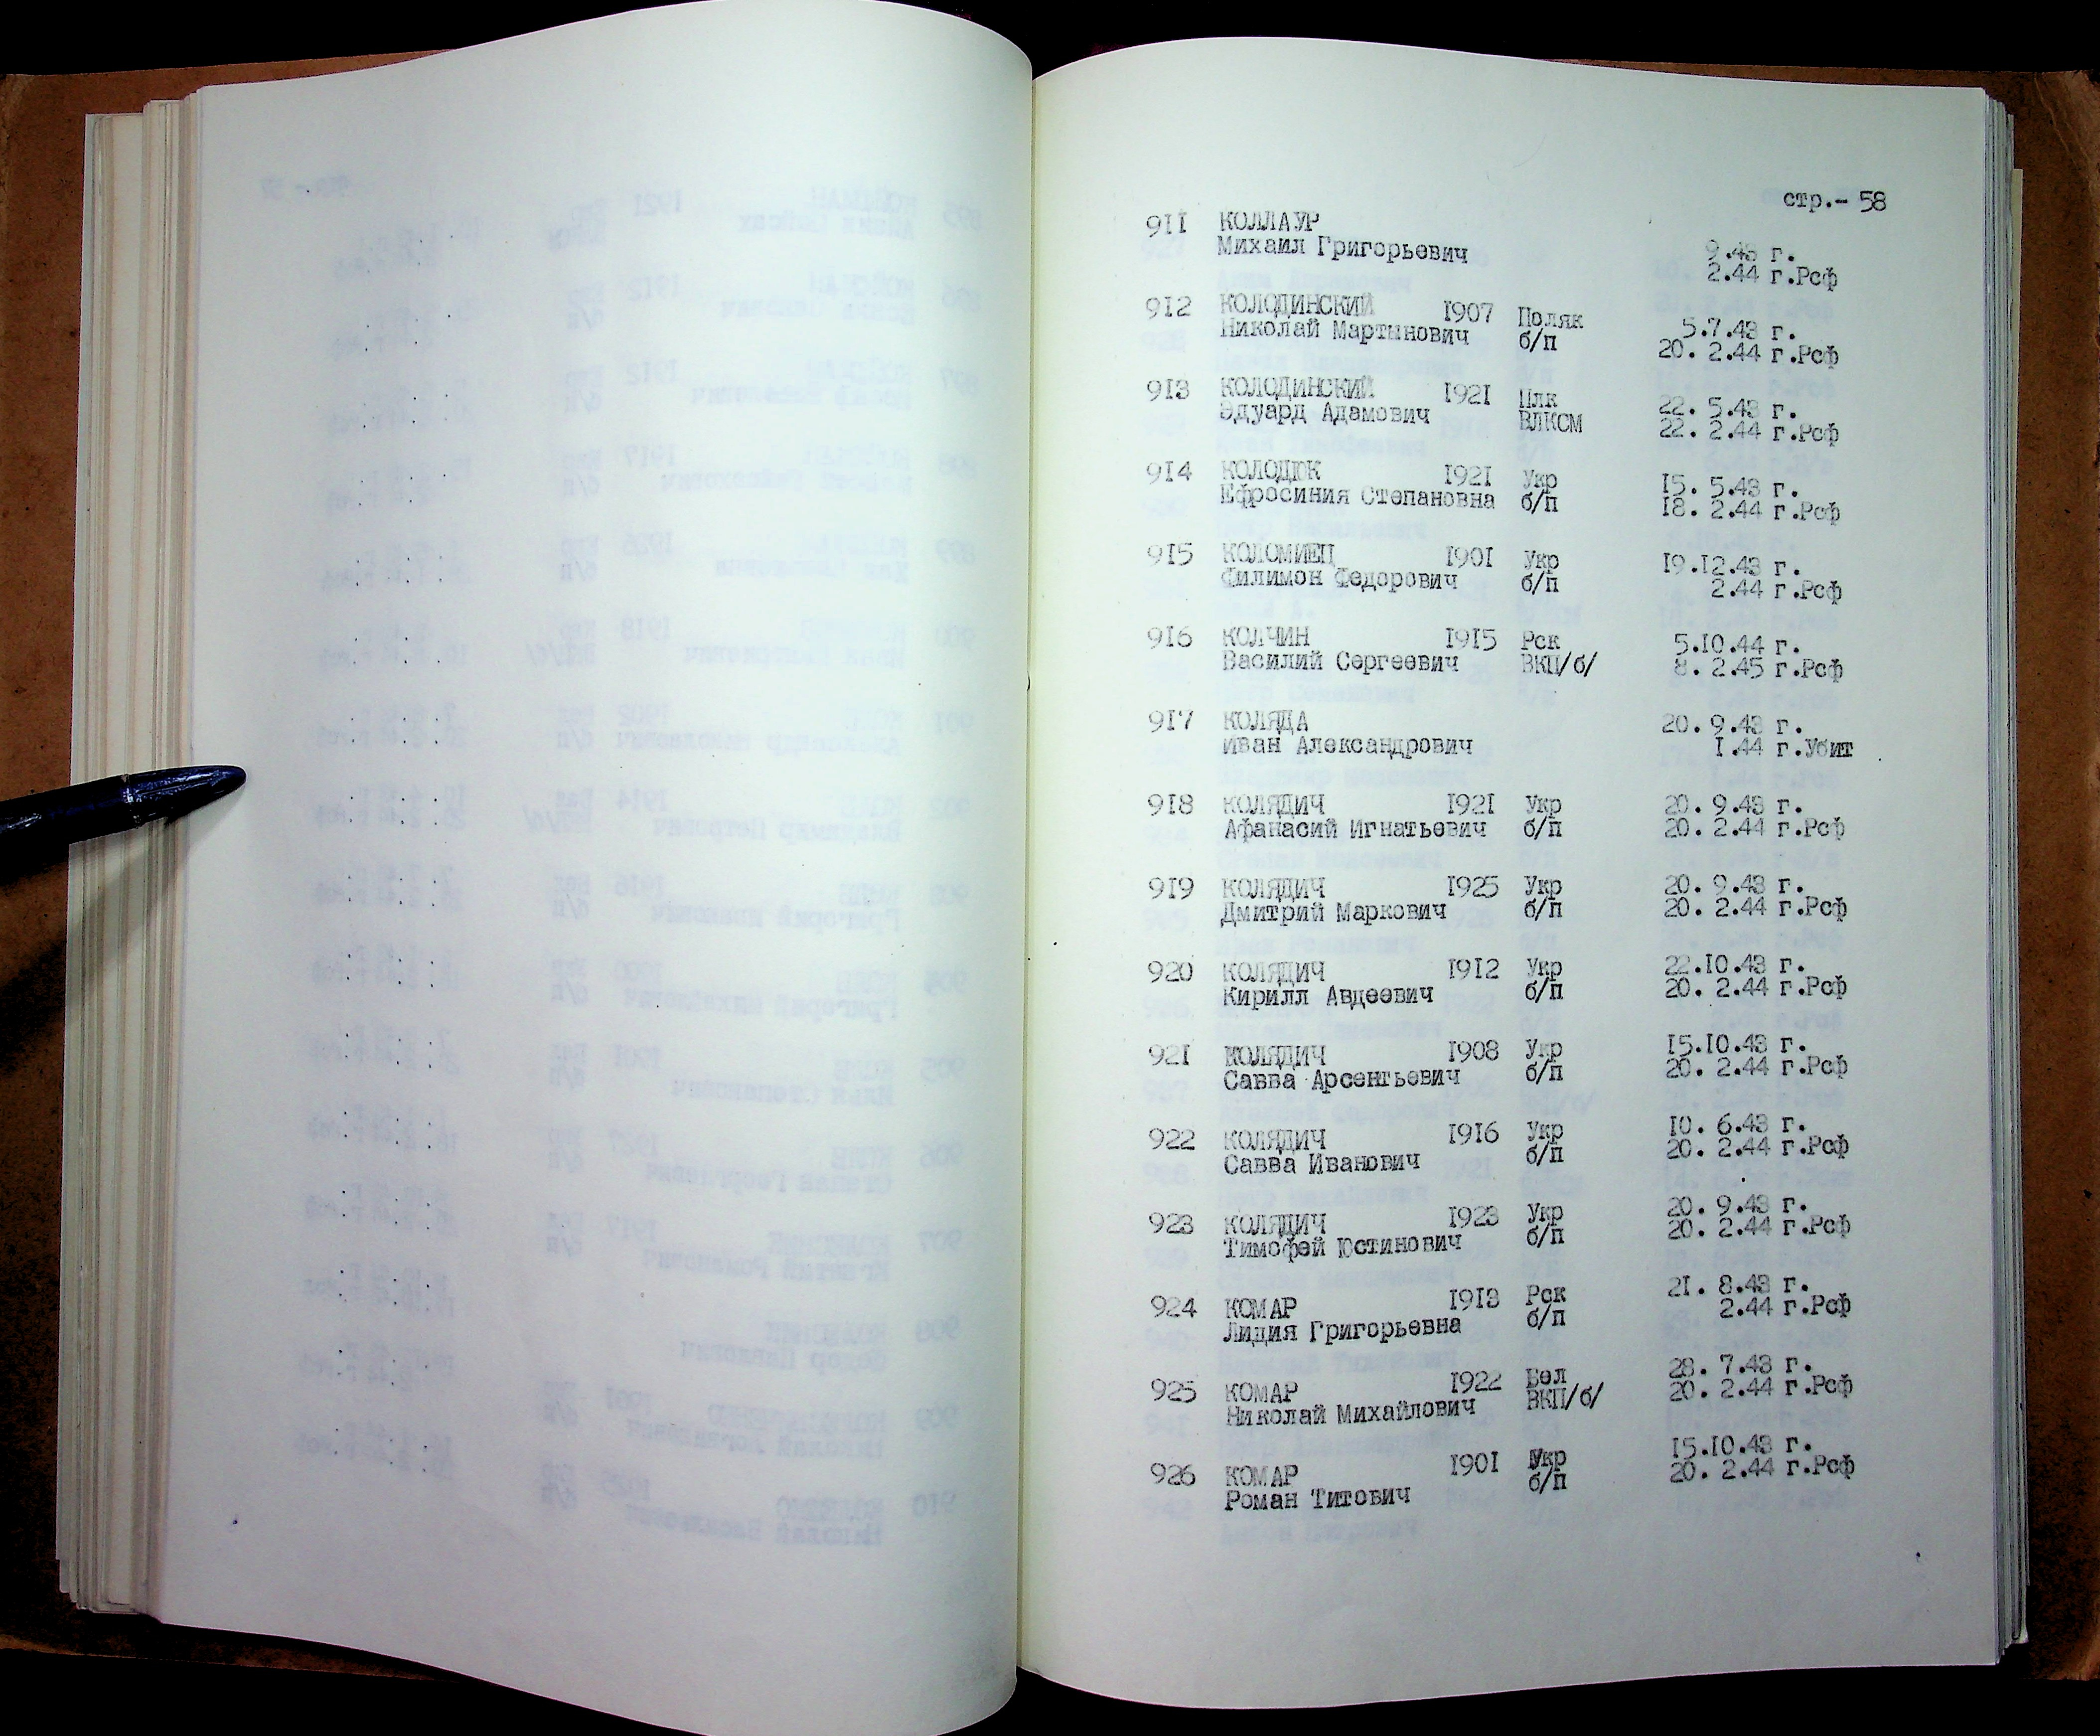 стр.- 58
911 КОЛЛАУР
Михаил Григорьевич 9.43 г.
2.44 г.Рсф
912 КОЛОДИНСКИЙ 1907 Поляк
Николай Мартынович б/п 5.7.43 г.
20. 2.44 г.Рсф
913 КОЛОДИНСКИЙ 1921 Плк 22. 5.43 г.
Эдуард Адамович ВЛКСМ 22. 2.44 г.Рсф
914 КОЛОДЮК 1921 Укр 15. 5.43 г.
Ефросиния Степановна б/п 18. 2.44 г.Рсф
915 КОЛОМИЕЦ 1901 Укр 19.12.43 г.
Филимон Федорович б/п 2.44 г.Рсф
916 КОЛЧИН 1915 Рск 5.10.44 г.
Василий Сергеевич ВКП/б/ 8. 2.45 г.Рсф
917 КОЛЯДА 20. 9.43 г.
Иван Александрович 1.44 г.Убит
918 КОЛЯДИЧ 1921 Укр 20. 9.43 г.
Афанасий Игнатьевич б/п 20. 2.44 г.Рсф
919 КОЛЯДИЧ 1925 Укр 20. 9.43 г.
Дмитрий Маркович б/п 20. 2.44 г.Рсф
920 КОЛЯДИЧ 1912 Укр 22.10.43 г.
Кирилл Авдеевич б/п 20. 2.44 г.Рсф
921 КОЛЯДИЧ 1908 Укр 15.10.43 г.
Савва Арсентьевич б/п 20. 2.44 г.Рсф
922 КОЛЯДИЧ 1916 Укр 10. 6.43 г.
Савва Иванович б/п 20. 2.44 г.Рсф
923 КОЛЯДИЧ 1923 Укр 20. 9.43 г.
Тимофей Юстинович б/п 20. 2.44 г.Рсф
924 КОМАР 1913 Рск 21. 8.43 г.
Лидия Григорьевна б/п 2.44 г.Рсф
925 КОМАР 1922 Бел 28. 7.43 г.
Николай Михайлович ВКП/б/ 20. 2.44 г.Рсф
926 КОМАР 1901 Укр 15.10.43 г.
Роман Титович б/п 20. 2.44 г.Рсф